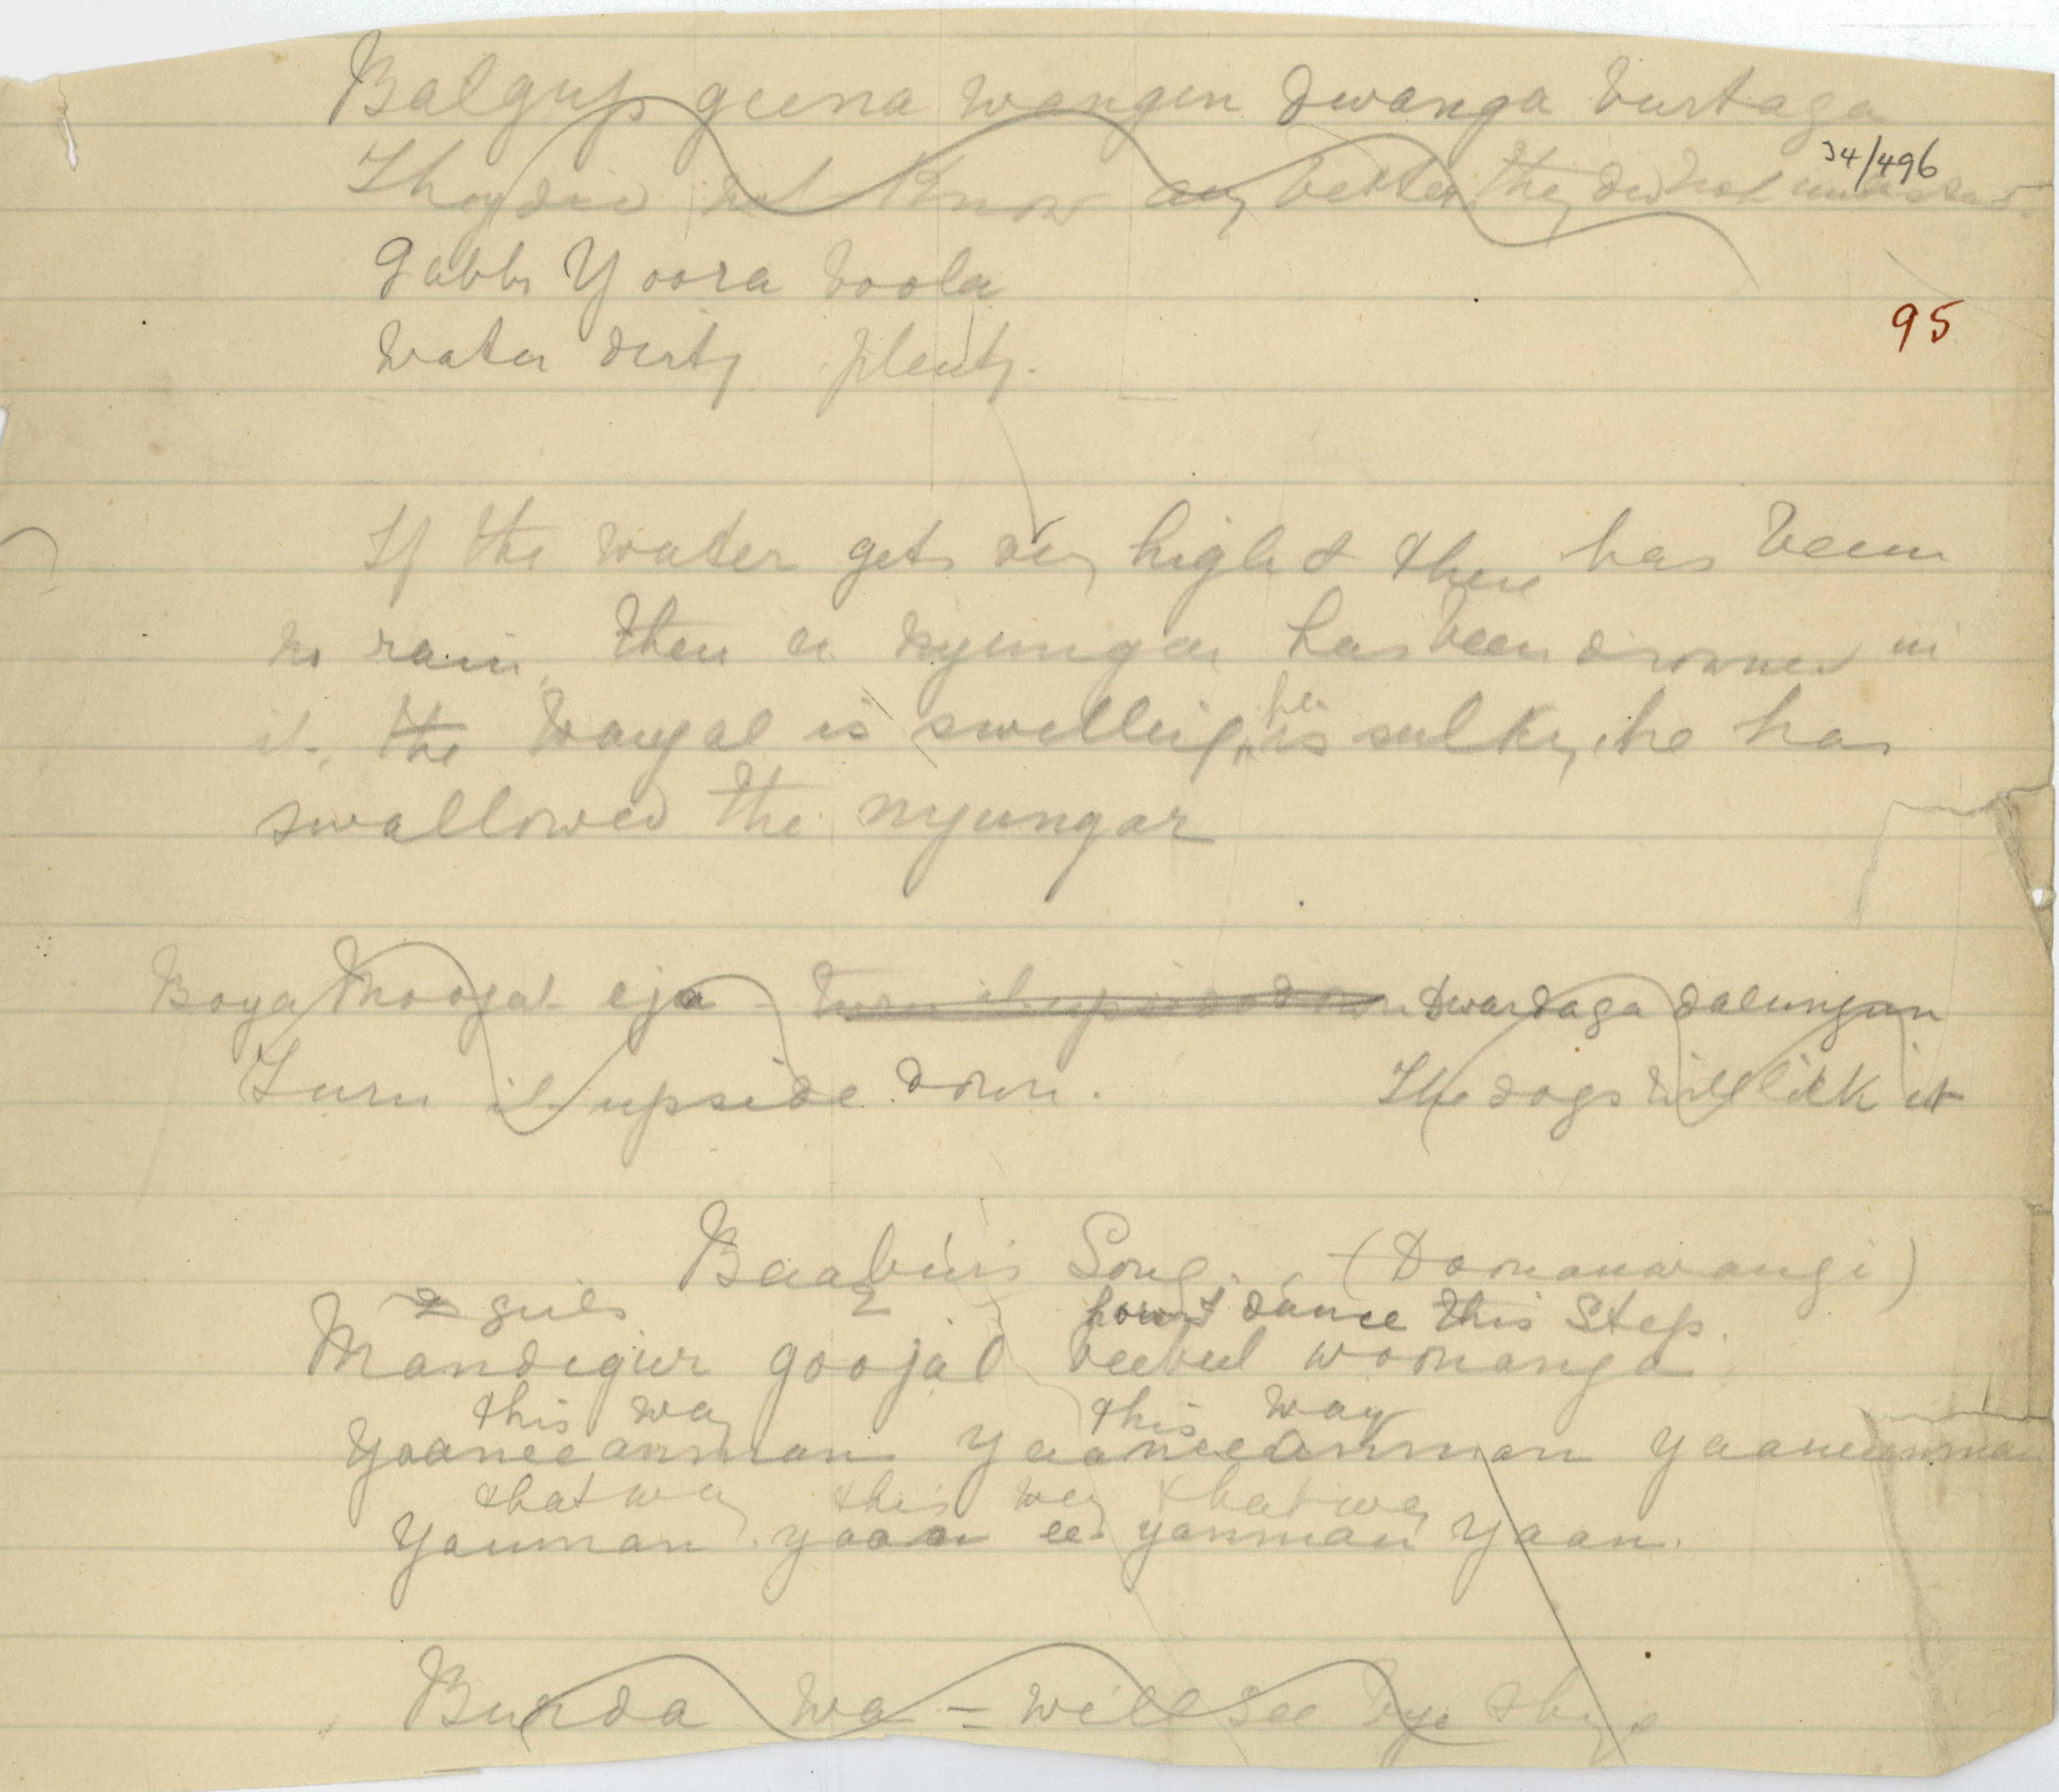 Balgup geena wangin dwanga burtaga
34/496
They did not know any better, they did not understand
Gabbi Yoora boola
95
Water dirty plenty.
If the water gets very high & there has been
no rain, then a nyungar has been drowned in
it, the Waugal is swelling, he is sulky, he has
swallowed the nyungar
Boya moojat eja - turn it upside down dwardaga dalungan
Turn it upside down. The dogs will lick it
Song. (Domanwangi)
2 girls how to dance this step.
Mandigur goojal beebul womanga
this way this way
Yaaneeanman yaaneeanman yaaneeanman
that way this way that way
Yanman yaan ee yanman yaan.
Burda wa - will see bye & bye